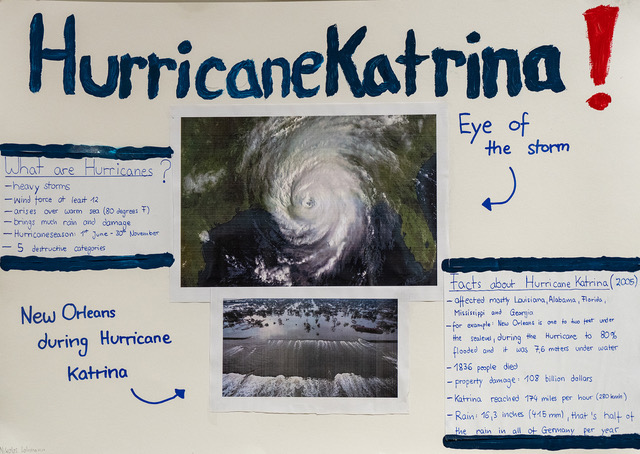 HurricaneKatrina!
Eye of
the storm
What are Hurricanes?
-heavy storms
-wind force at least 12
-arises over warm sea (80 degrees F)
-brings much rain and damage
-Hurricaneseason: 1st June - 30th November
- 5 destructive categories
New Orleans
during Hurricane
Katrina
Facts about Hurricane Katrina (2005)
- affected mostly Louisiana, Alabama, Florida,
Mississippi and Georgia
-for example: New Orleans is one to two feet under
the sealevel, during the Hurricane to 80%
flooded and it was 7,6 meters under water
-1836 people died
-property damage: 108 billion dollars
-Katrina reached 174 miles per hour (280 km/h)
-Rain: 16,3 inches (415 mm), that's half of
the rain in all of Germany per year